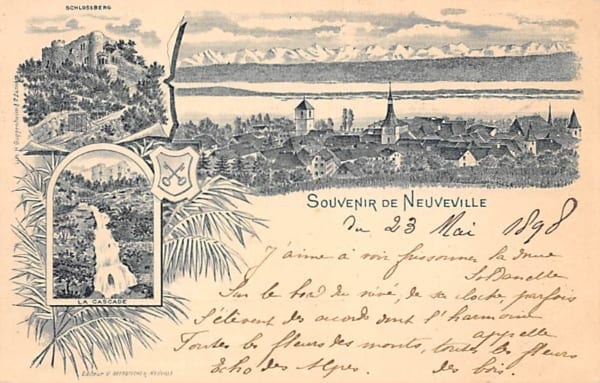 SCHLOSSBERG
SOUVENIR DE NEUVEVILLE
du 23 Mai 1898
LA CASCADE
J'aime à voir frissonner la
Soldanelle
Sur le bord du névé, de sa cloche parfois
S'élèvent des accords dont l'harmonie
appelle
Toutes les fleurs des monts, toutes les fleurs
Echo des Alpes. des bois.
Editeur
NEUVEVILLE